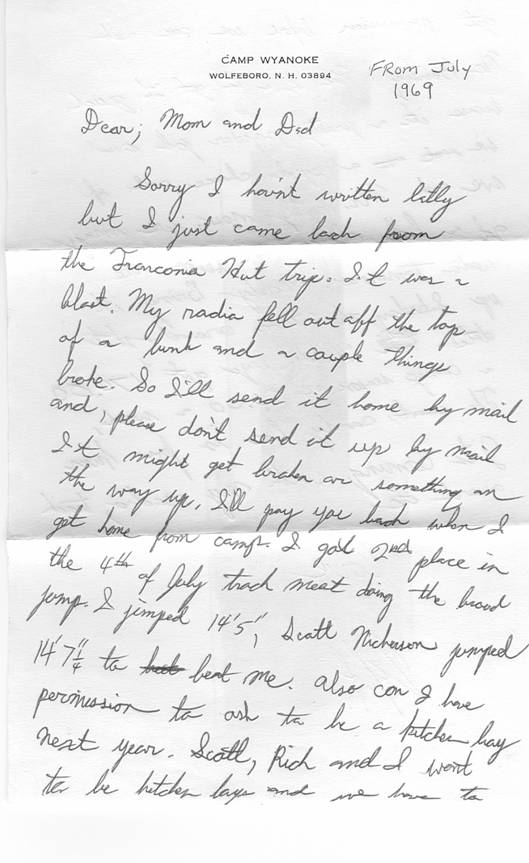 CAMP WYANOKE
WOLFEBORO, N. H. 03894
FROM July
1969
Dear; Mom and Dad
Sorry I hav'nt written latly
but I just came back from
the Franconia Hut trip. It was a
blast. My radia fell out off the top
of a bunk and a couple things
broke. So I'll send it home by mail
and, please don't send it up by mail
It might get broken or something on
the way up. I'll pay you back when I
get home from camp. I got 2nd place in
the 4th of July track meet doing the broad
jump. I jimped 14'5", Scott Nickerson jumped
14'7 1/4" to beat me. Also can I have
permission to ask to be a kitchen boy
next year. Scott, Rich and I want
to be kitchen boys and we have to